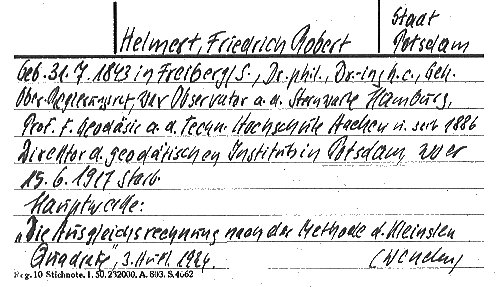 Helmert, Friedrich Robert
Stadt
Potsdam
Geb. 31.7.1843 in Freiberg/S., Dr. phil., Dr.-ing h.c., Geh.
Ober-Regierungsrat, war Observator a.d. Sternwarte Hamburg,
Prof. f. Geodäsie a.d. Techn. Hochschule Aachen u. seit 1886
Direktor d. geodätischen Instituts in Potsdam, wo er
15.6.1917 starb.
Hauptwerke:
„Die Ausgleichsrechnung nach der Methode d. kleinsten
Quadrate", 3. Aufl. 1924.
Reg. 10 Stichnote. I. 50. 232000. A. 803. S. 4662